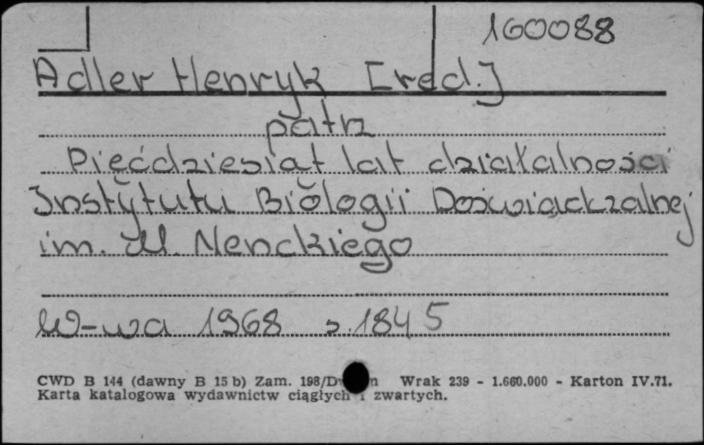 160088
Adler Henryk [red.]
patrz
Pięćdziesiąt lat działalności
Instytutu Biologii Doświadczalnej
im. M. Nenckiego
W-wa 1968 s. 1845
CWD B 144 (dawny B 15 b) Zam. 198/ Wrak 239 - 1.660.000 - Karton IV.71.
Karta katalogowa wydawnictw ciągłych i zwartych.